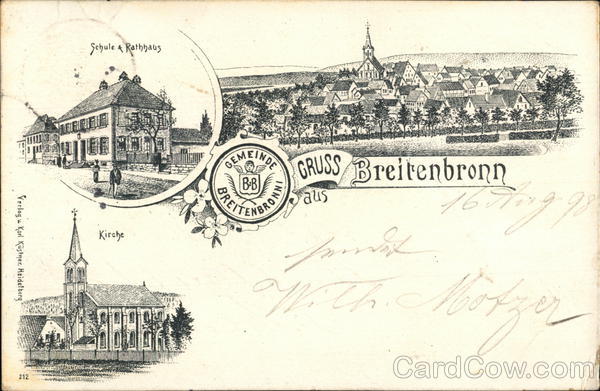 Schule & Rathhaus
GEMEINDE
B&B
BREITENBRONN
GRUSS
aus
Breitenbronn
16 Aug 98
sendet
Wilh. Motzer
Kirche
Verlag v. Karl Küstner, Heidelberg
212
CardCow.com